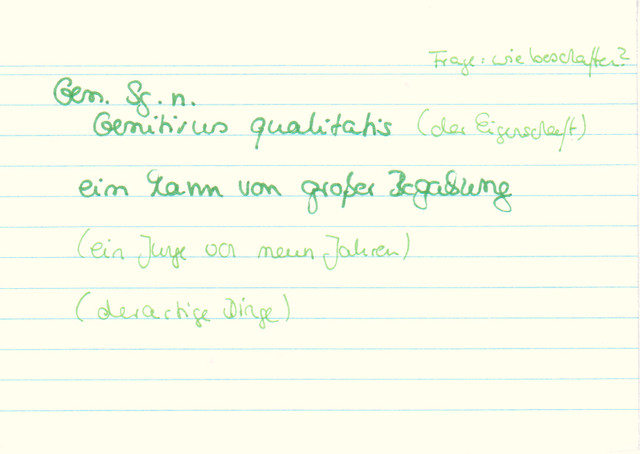 Frage: wie beschaffen?
Gen. Sg. n.
Genitivus qualitatis (der Eigenschaft)
ein Mann von großer Begabung
(ein Junge von neun Jahren)
(derartige Dinge)